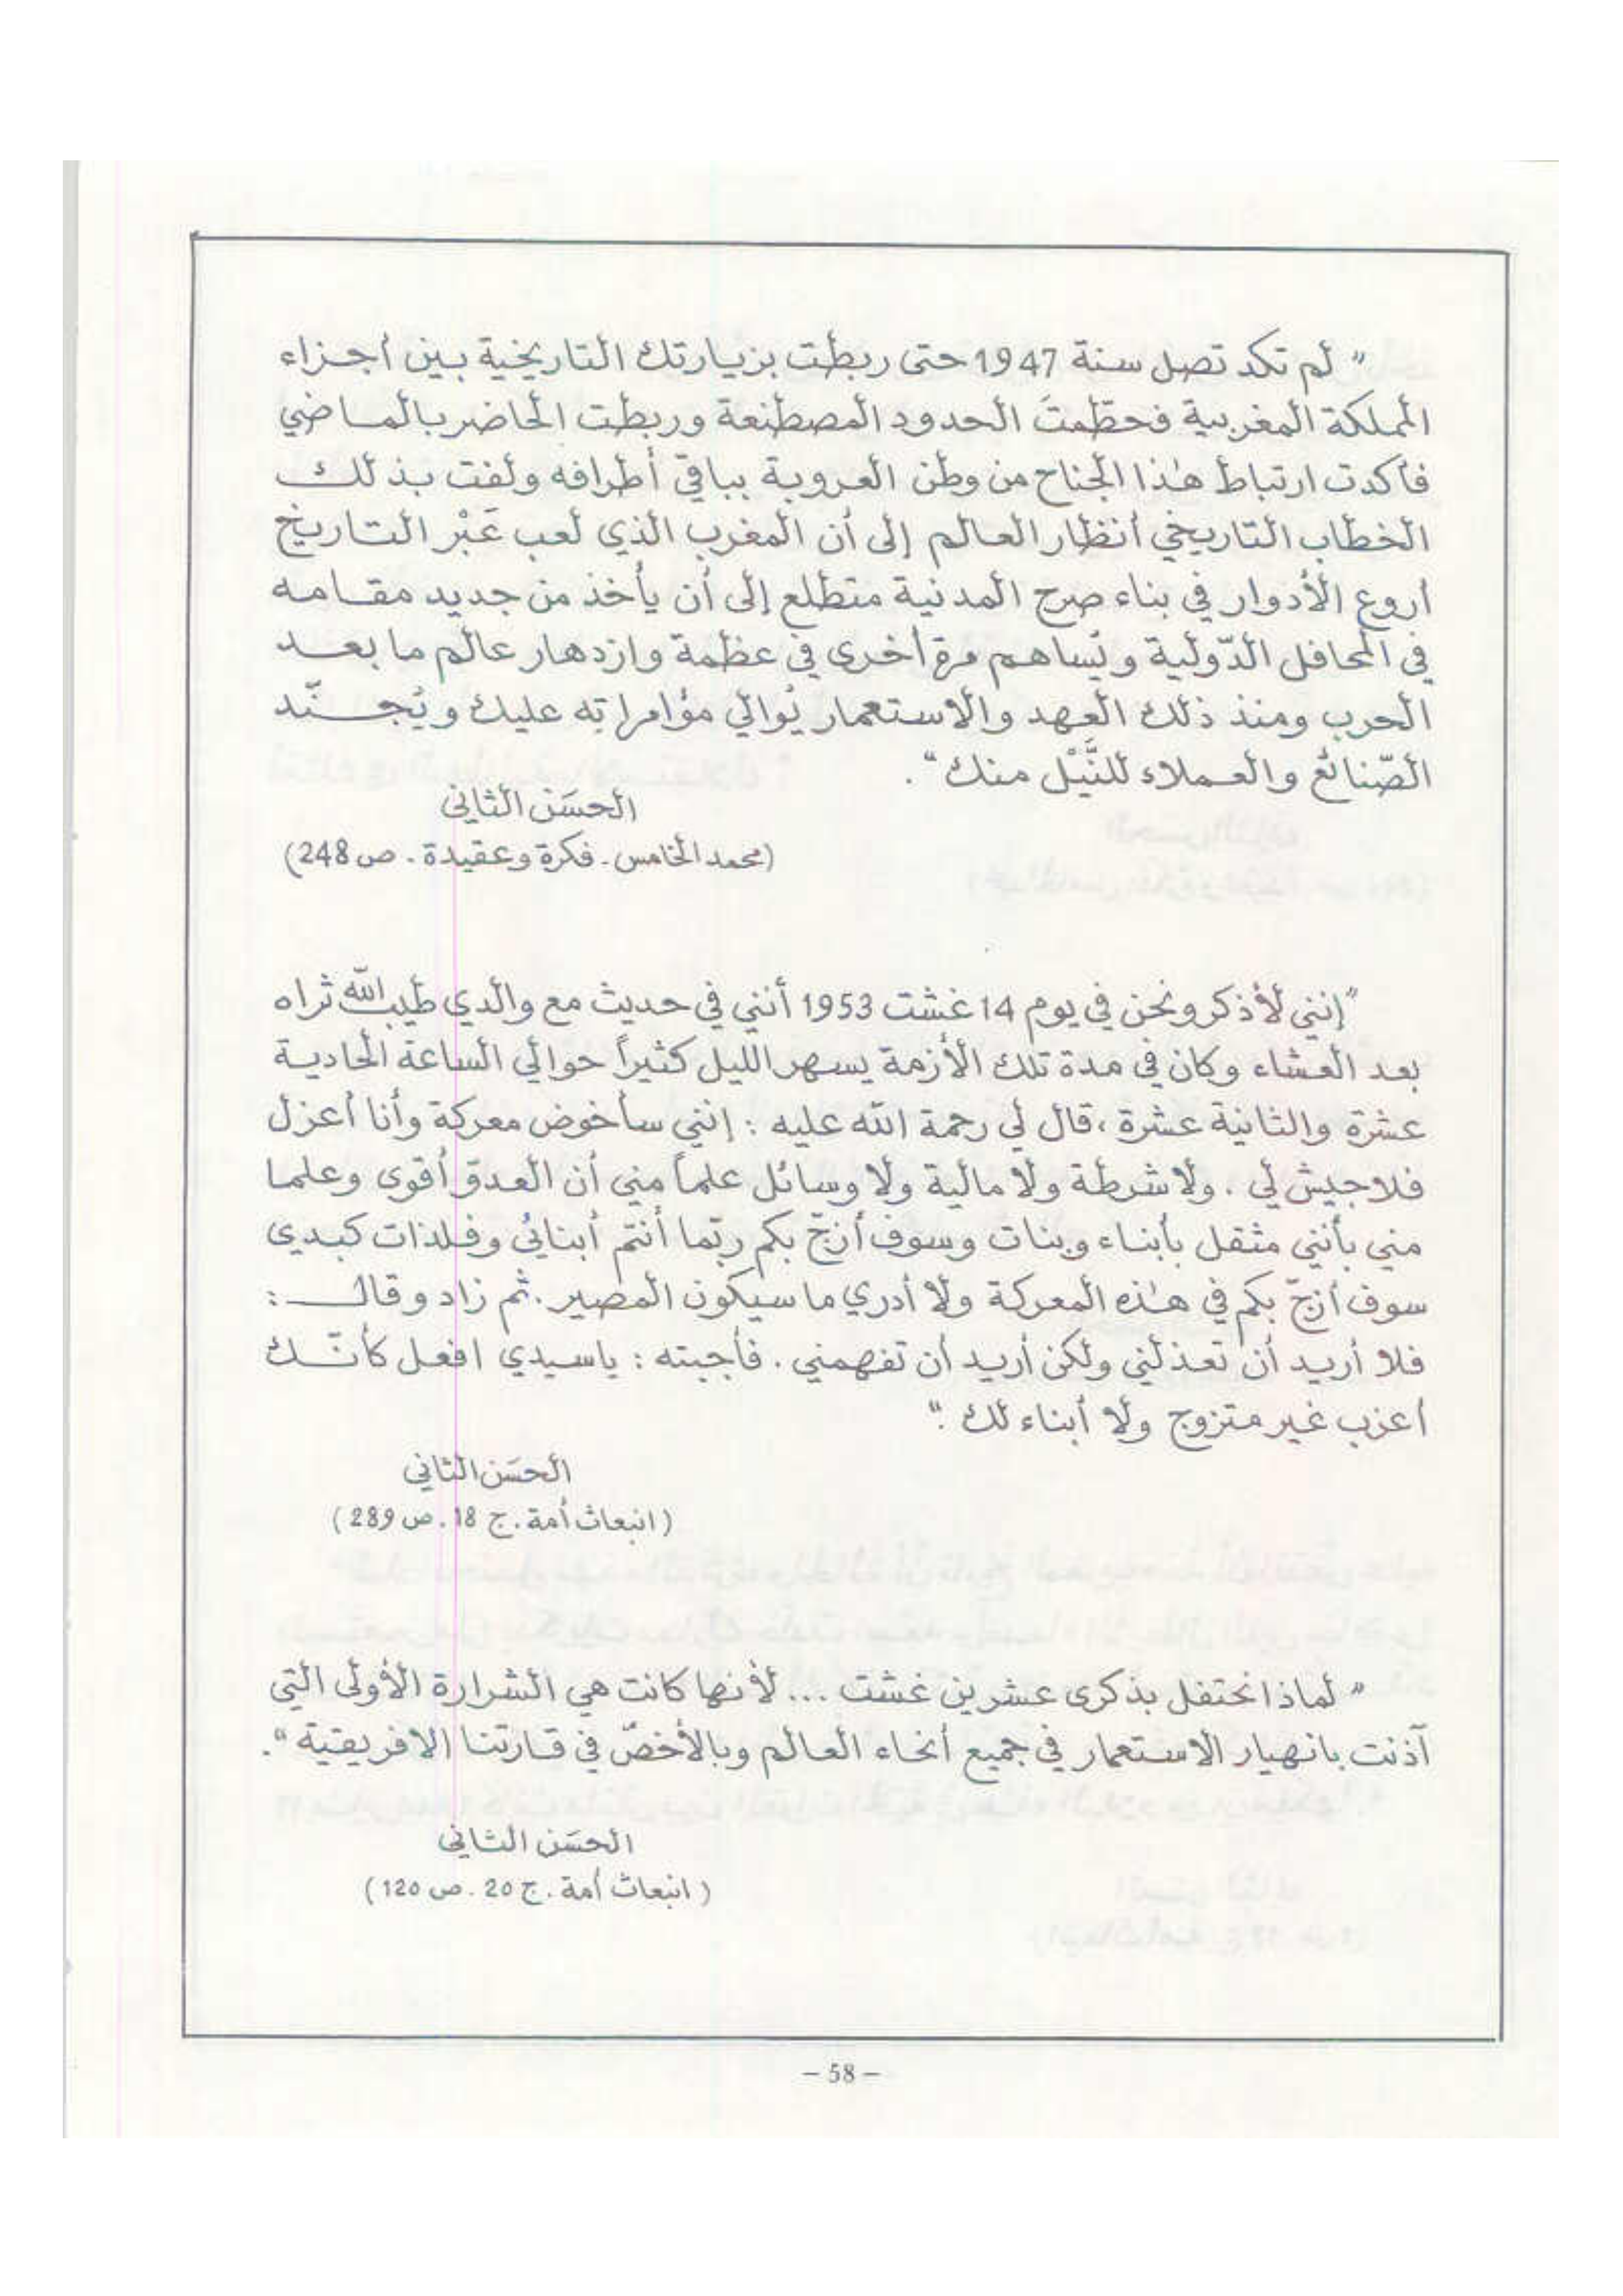 " لم تكد تصل سنة 1947 حتى ربطت بزيارتك التاريخية بين أجزاء
المملكة المغربية فحطّمتَ الحدود المصطنعة وربطت الحاضر بالماضي
فأكدت ارتباط هذا الجناح من وطن العروبة بباقي أطرافه ولفت بذلك
الخطاب التاريخي أنظار العالم إلى أن المغرب الذي لعب عَبْر التاريخ
أروع الأدوار في بناء صرح المدنية متطلع إلى أن يأخذ من جديد مقامه
في المحافل الدّولية ويُساهم مرة أخرى في عظمة وازدهار عالم ما بعد
الحرب ومنذ ذلك العهد والاستعمار يُوالي مؤامراته عليك ويُجنّد
الصّنائع والعملاء للنَّيْل منك".
الحسَن الثاني
(محمد الخامس - فكرة وعقيدة - ص 248)
"إنني لأذكر ونحن في يوم 14 غشت 1953 أنني في حديث مع والدي طيب الله ثراه
بعد العشاء وكان في مدة تلك الأزمة يسهر الليل كثيراً حوالي الساعة الحادية
عشرة والثانية عشرة، قال لي رحمة الله عليه : إنني سأخوض معركة وأنا أعزل
فلا جيش لي . ولا شرطة ولا مالية ولا وسائل علماً مني أن العدوّ أقوى وعلما
مني بأنني مثقل بأبناء وبنات وسوف أزجّ بكم ربّما أنتم أبنائي وفلذات كبدي
سوف أزجّ بكم في هذه المعركة ولا أدري ما سيكون المصير . ثم زاد وقال :
فلا أريد أن تعذلني ولكن أريد أن تفهمني . فأجبته : يا سيدي افعل كأنّك
أعزب غير متزوج ولا أبناء لك ."
الحسَن الثاني
(انبعاث أمة . ج 18 . ص 289)
" لماذا نحتفل بذكرى عشرين غشت ... لأنها كانت هي الشرارة الأولى التي
آذنت بانهيار الاستعمار في جميع أنحاء العالم وبالأخصّ في قارتنا الافريقية".
الحسَن الثاني
(انبعاث أمة . ج 20 . ص 120)
– 58 –